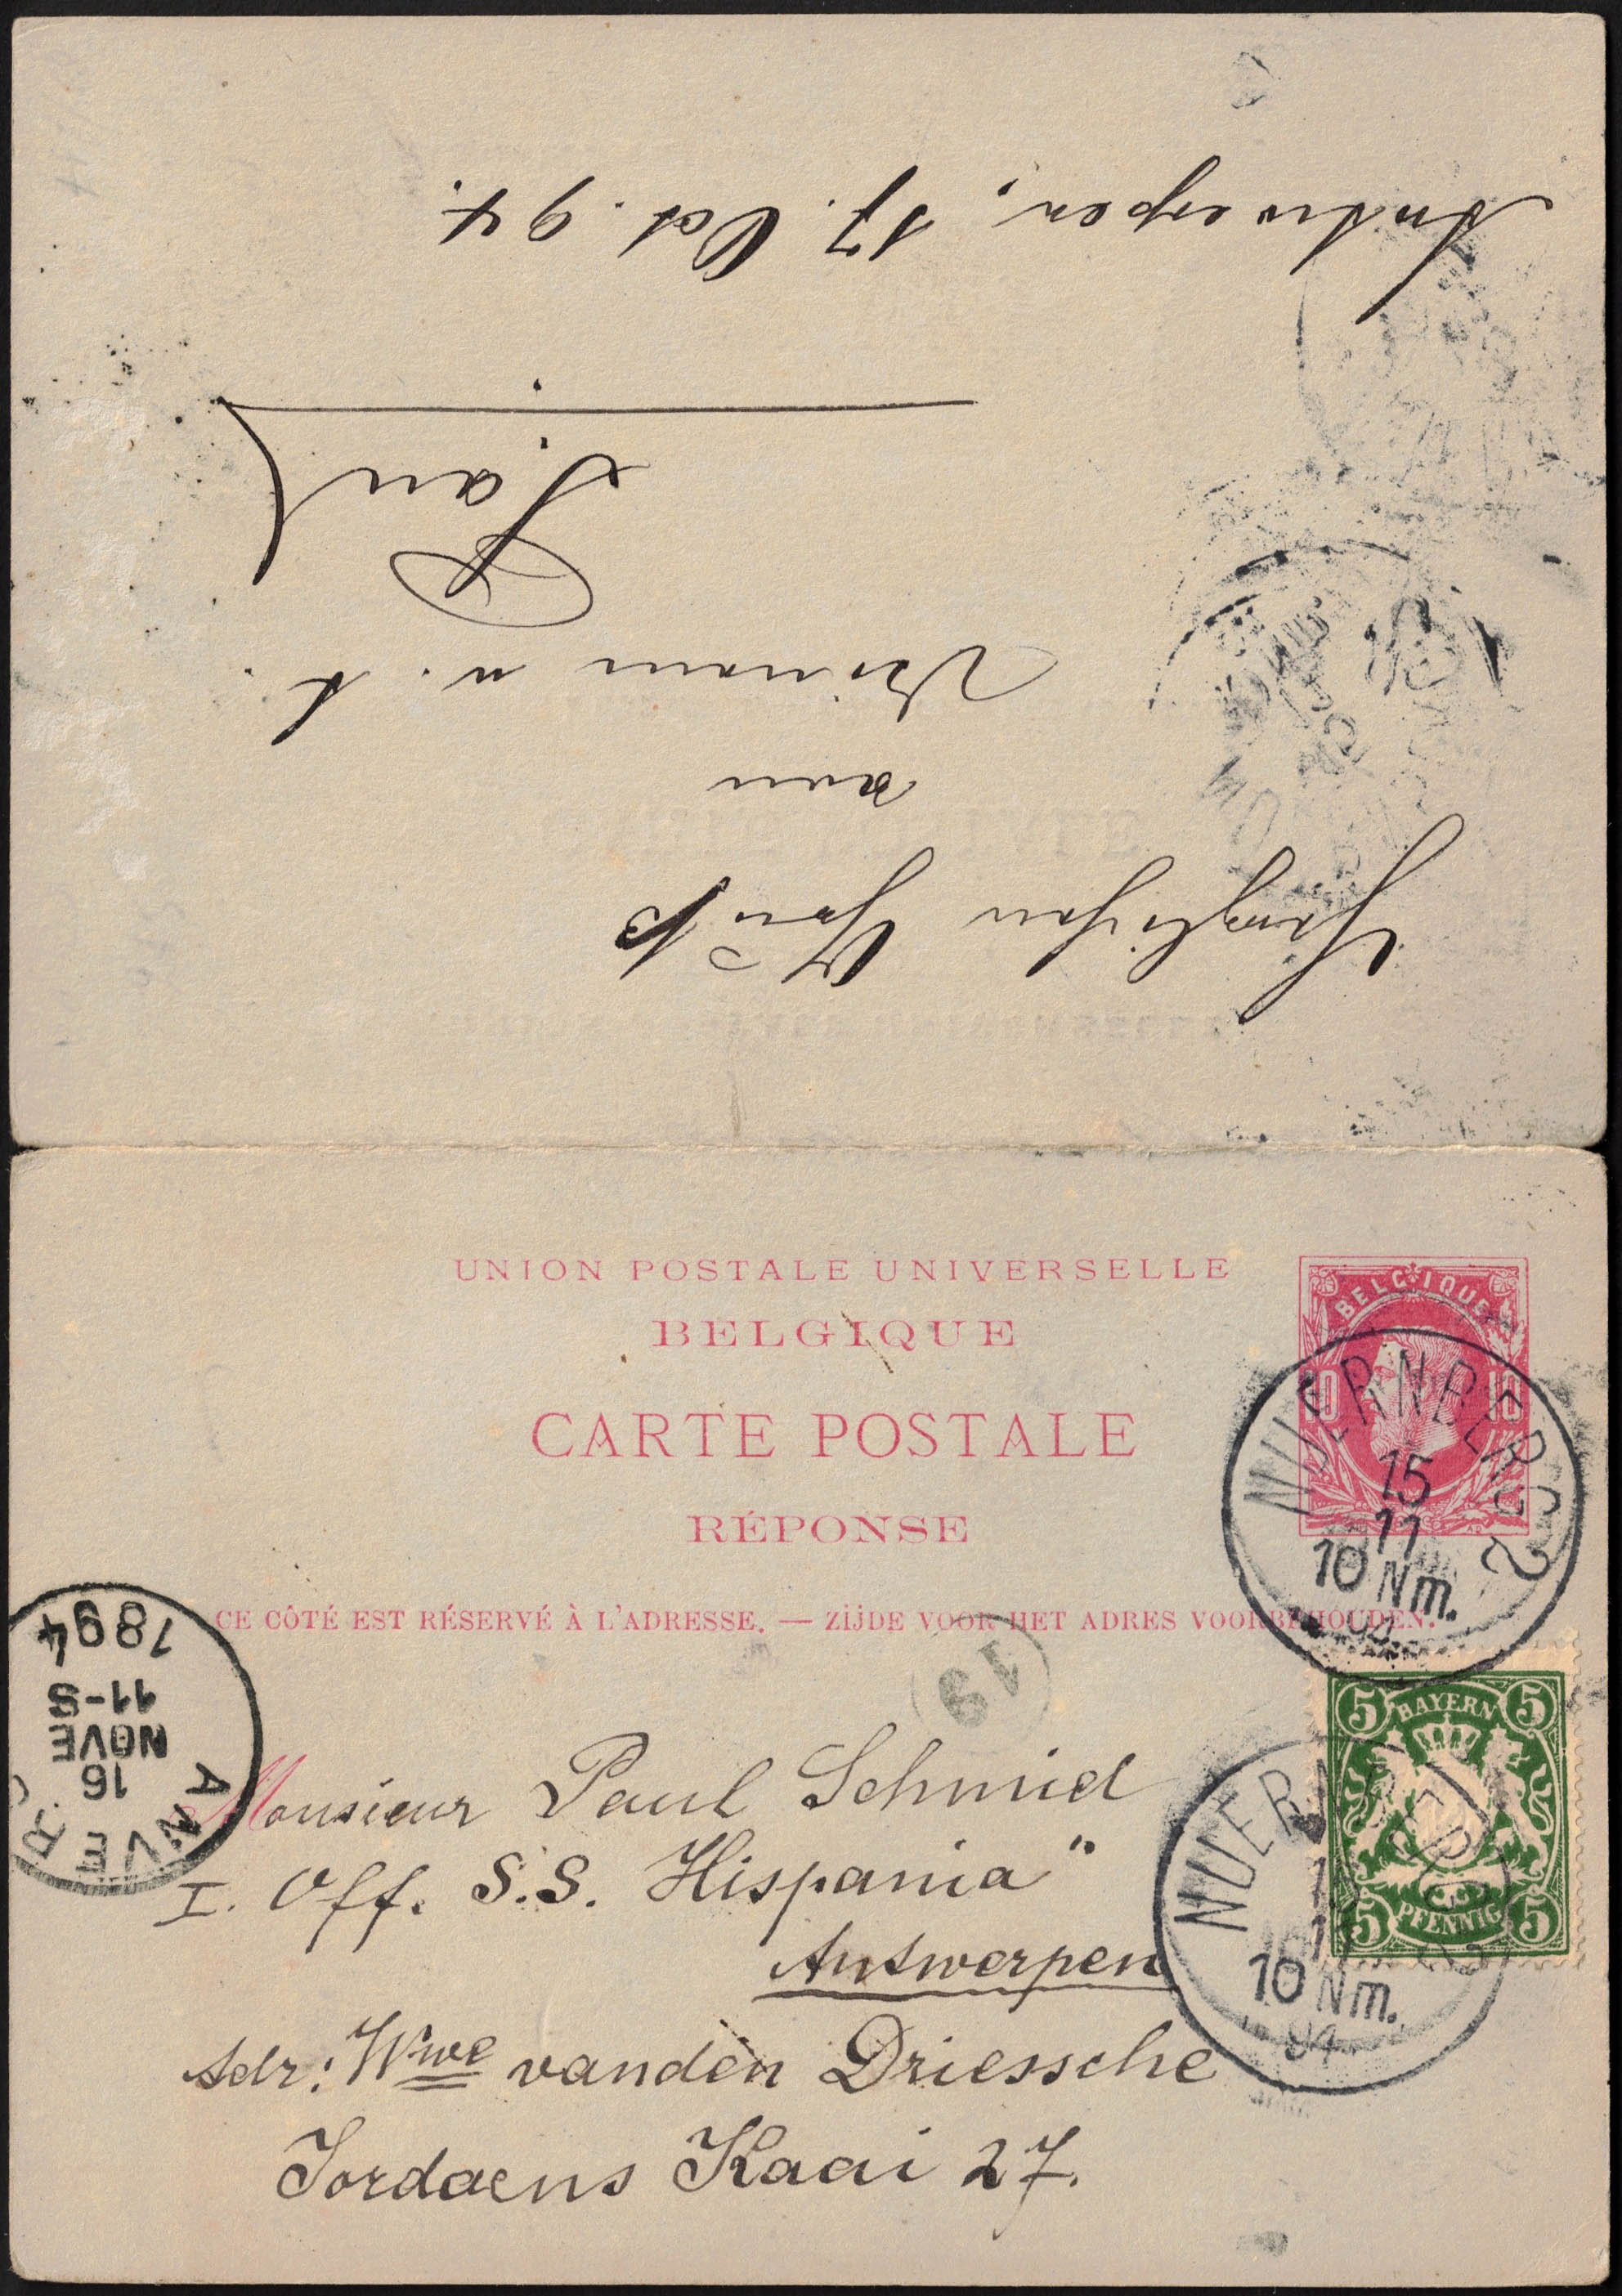 Antwerpen, 17. Oct. 94.
Herzlichen Gruß
von
Paul
UNION POSTALE UNIVERSELLE
BELGIQUE
CARTE POSTALE
RÉPONSE
CE CÔTÉ EST RÉSERVÉ À L'ADRESSE. — ZIJDE VOOR HET ADRES VOORBEHOUDEN.
BELGIQUE
10 10
NUERNBERG 2
15
11
10 Nm.
94
19
ANVERS
16
NOVE
11-S
1894
5 BAYERN 5
5 PFENNIG 5
NUERNBERG 2
10 Nm.
94
Monsieur Paul Schmid
I. Off. S.S. Hispania"
Antwerpen
Adr: Wwe vanden Driessche
Jordaens Kaai 27.